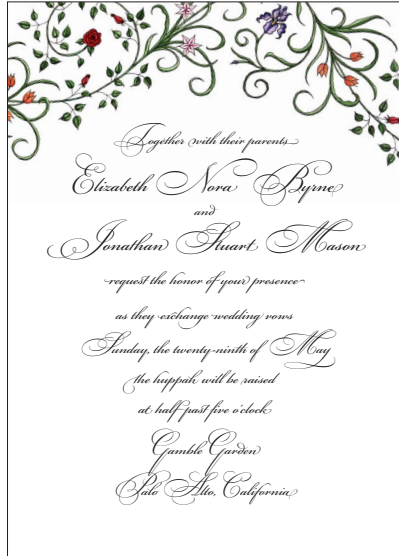 Together with their parents
Elizabeth Nora Byrne
and
Jonathan Stuart Mason
request the honor of your presence
as they exchange wedding vows
Sunday, the twenty-ninth of May
the huppah will be raised
at half past five o'clock
Gamble Garden
Palo Alto, California